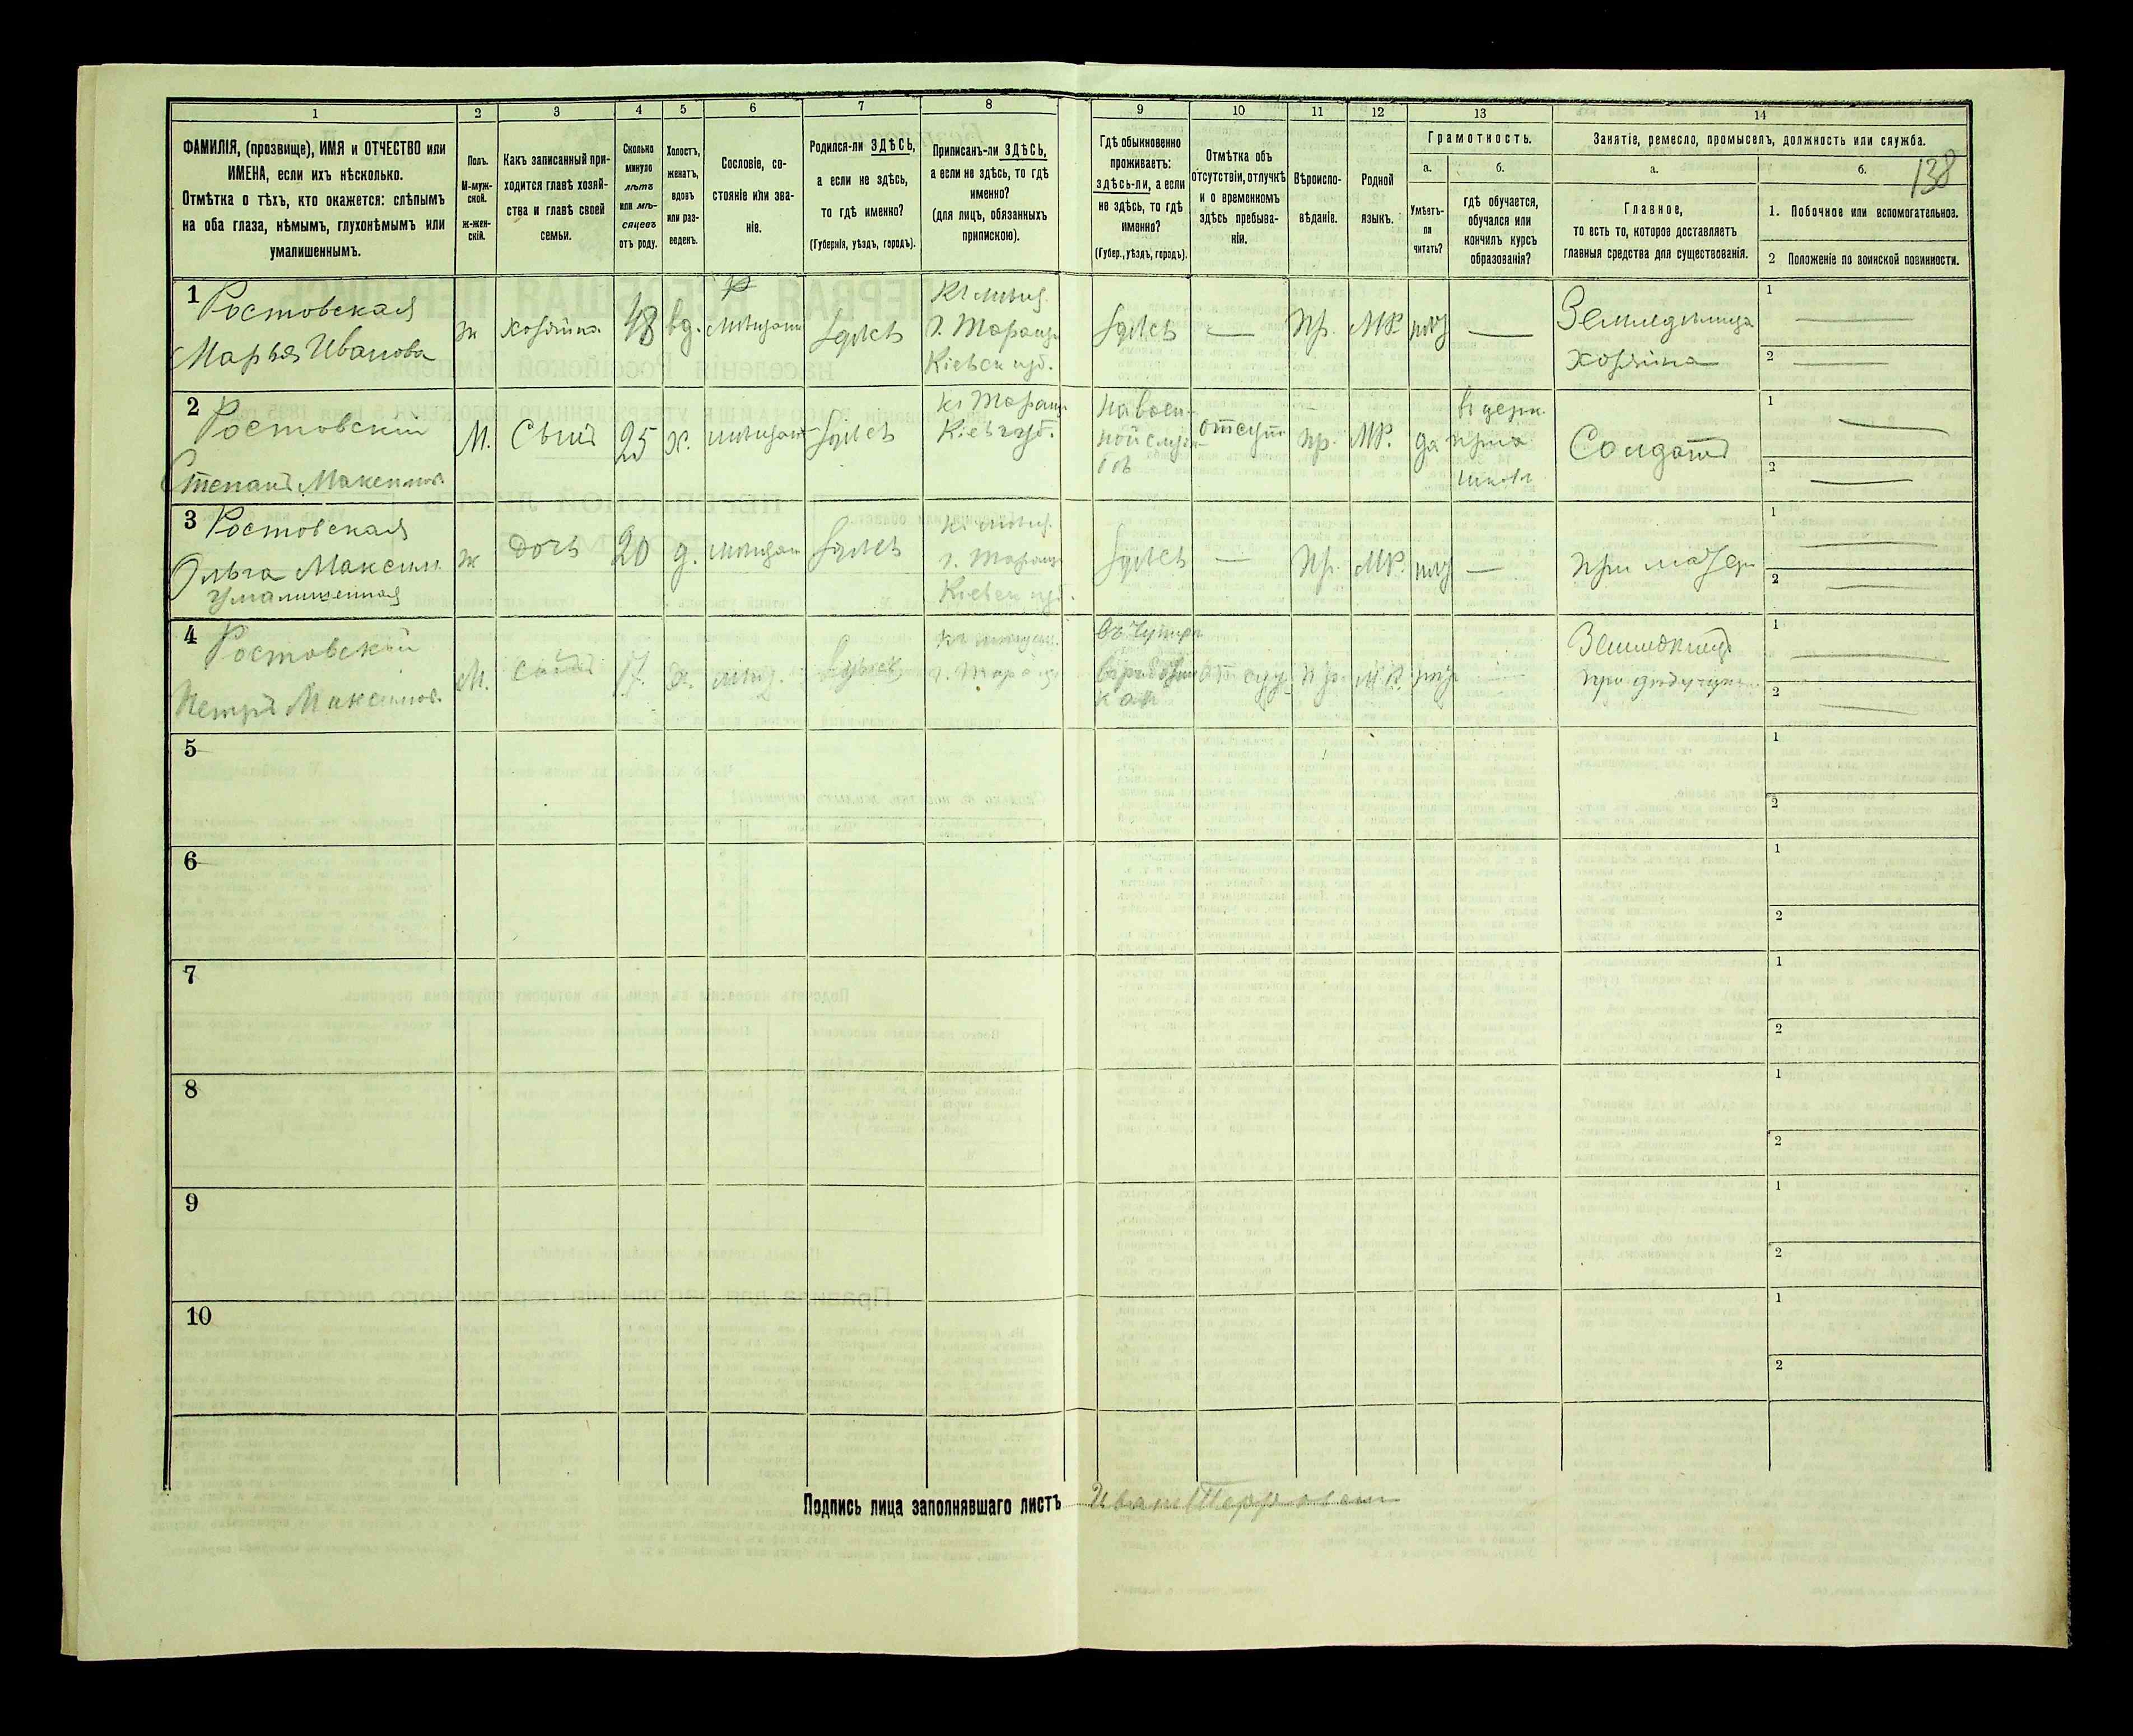 1 2 3 4 5 6 7 8 9 10 11 12 13 14
138
ФАМИЛІЯ, (прозвище), ИМЯ и ОТЧЕСТВО или
ИМЕНА, если ихъ нѣсколько.
Отмѣтка о тѣхъ, кто окажется: слѣпымъ
на оба глаза, нѣмымъ, глухонѣмымъ или
умалишеннымъ.
Полъ.
М-муж-
ской.
Ж-жен-
скій.
Какъ записанный при-
ходится главѣ хозяй-
ства и главѣ своей
семьи.
Сколько
минуло
лѣтъ
или мѣ-
сяцевъ
отъ роду.
Холостъ,
женатъ,
вдовъ
или раз-
веденъ.
Сословіе, со-
стояніе или зва-
ніе.
Родился-ли ЗДѢСЬ,
а если не здѣсь,
то гдѣ именно?
(Губернія, уѣздъ, городъ).
Приписанъ-ли ЗДѢСЬ,
а если не здѣсь, то гдѣ
именно?
(для лицъ, обязанныхъ
припискою).
Гдѣ обыкновенно
проживаетъ:
здѣсь-ли, а если
не здѣсь, то гдѣ
именно?
(Губер., уѣздъ, городъ).
Отмѣтка объ
отсутствіи, отлучкѣ
и о временномъ
здѣсь пребыва-
ніи.
Вѣроиспо-
вѣданіе.
Родной
языкъ.
Грамотность.
а.
Умѣетъ-
ли
читать?
б.
гдѣ обучается,
обучался или
кончилъ курсъ
образованія?
Занятіе, ремесло, промыселъ, должность или служба.
а.
Главное,
то есть то, которое доставляетъ
главныя средства для существованія.
б.
1. Побочное или вспомогательное.
2 Положеніе по воинской повинности.
1 Ростовская
Марья Иванова
ж
хозяйка
48
вд.
здѣсь
г. Таращи
Кіевск губ.
здѣсь
—
пр.
МР.
—
хозяйка
1 —
2 —
2 Ростовскій
Степанъ Максимов
М.
Сынъ
25
х.
здѣсь
Кіев губ.
на воен-
ной служ-
бѣ
отсут
пр.
МР.
да
Солдатъ
1 —
2 —
3 Ростовская
Ольга Максим.
умалишенная
ж
дочь
20
д.
здѣсь
г. Таращ
Кіевск губ.
здѣсь
—
пр.
МР.
—
при матери
1 —
2 —
4 Ростовскій
Петръ Максимов.
М.
сынъ
17.
х.
мѣщ.
здѣсь
г. Таращ
пр.
МР.
—
1 —
2 —
5
1
2
6
1
2
7
1
2
8
1
2
9
1
2
10
1
2
Подпись лица заполнявшаго листъ Иван